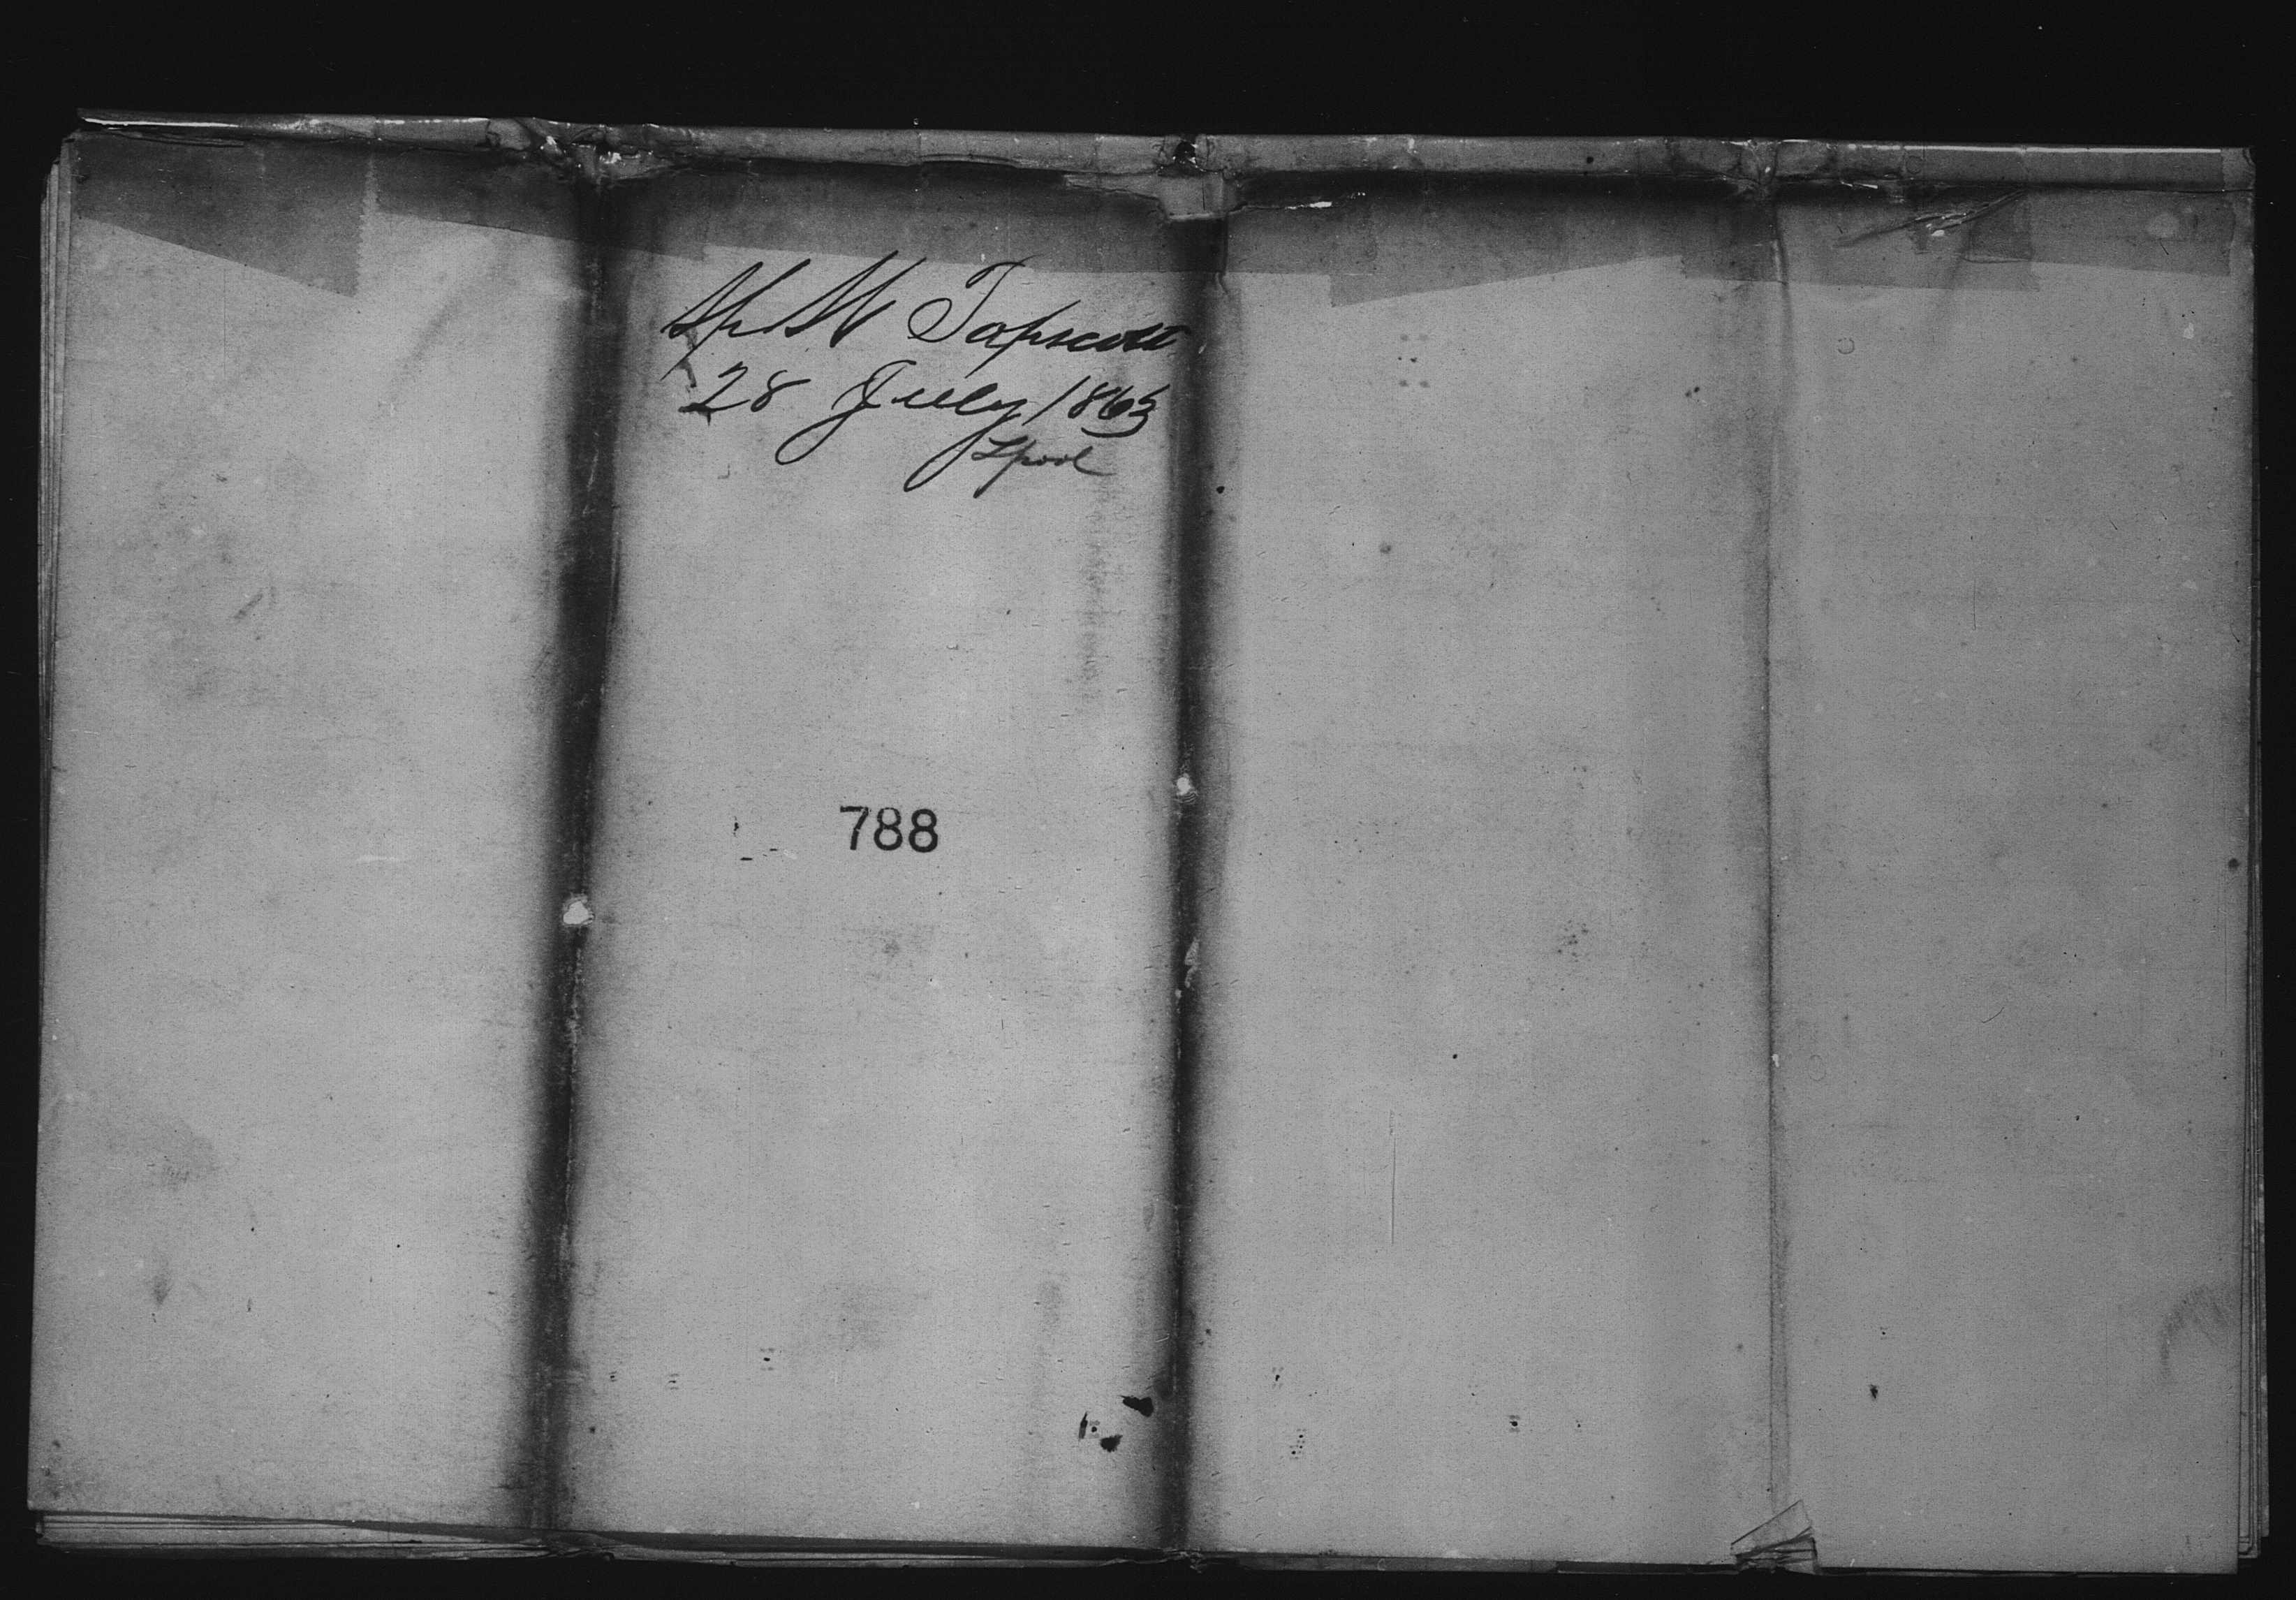 Sp W Tapscott
28 July 1863
Lpool
788